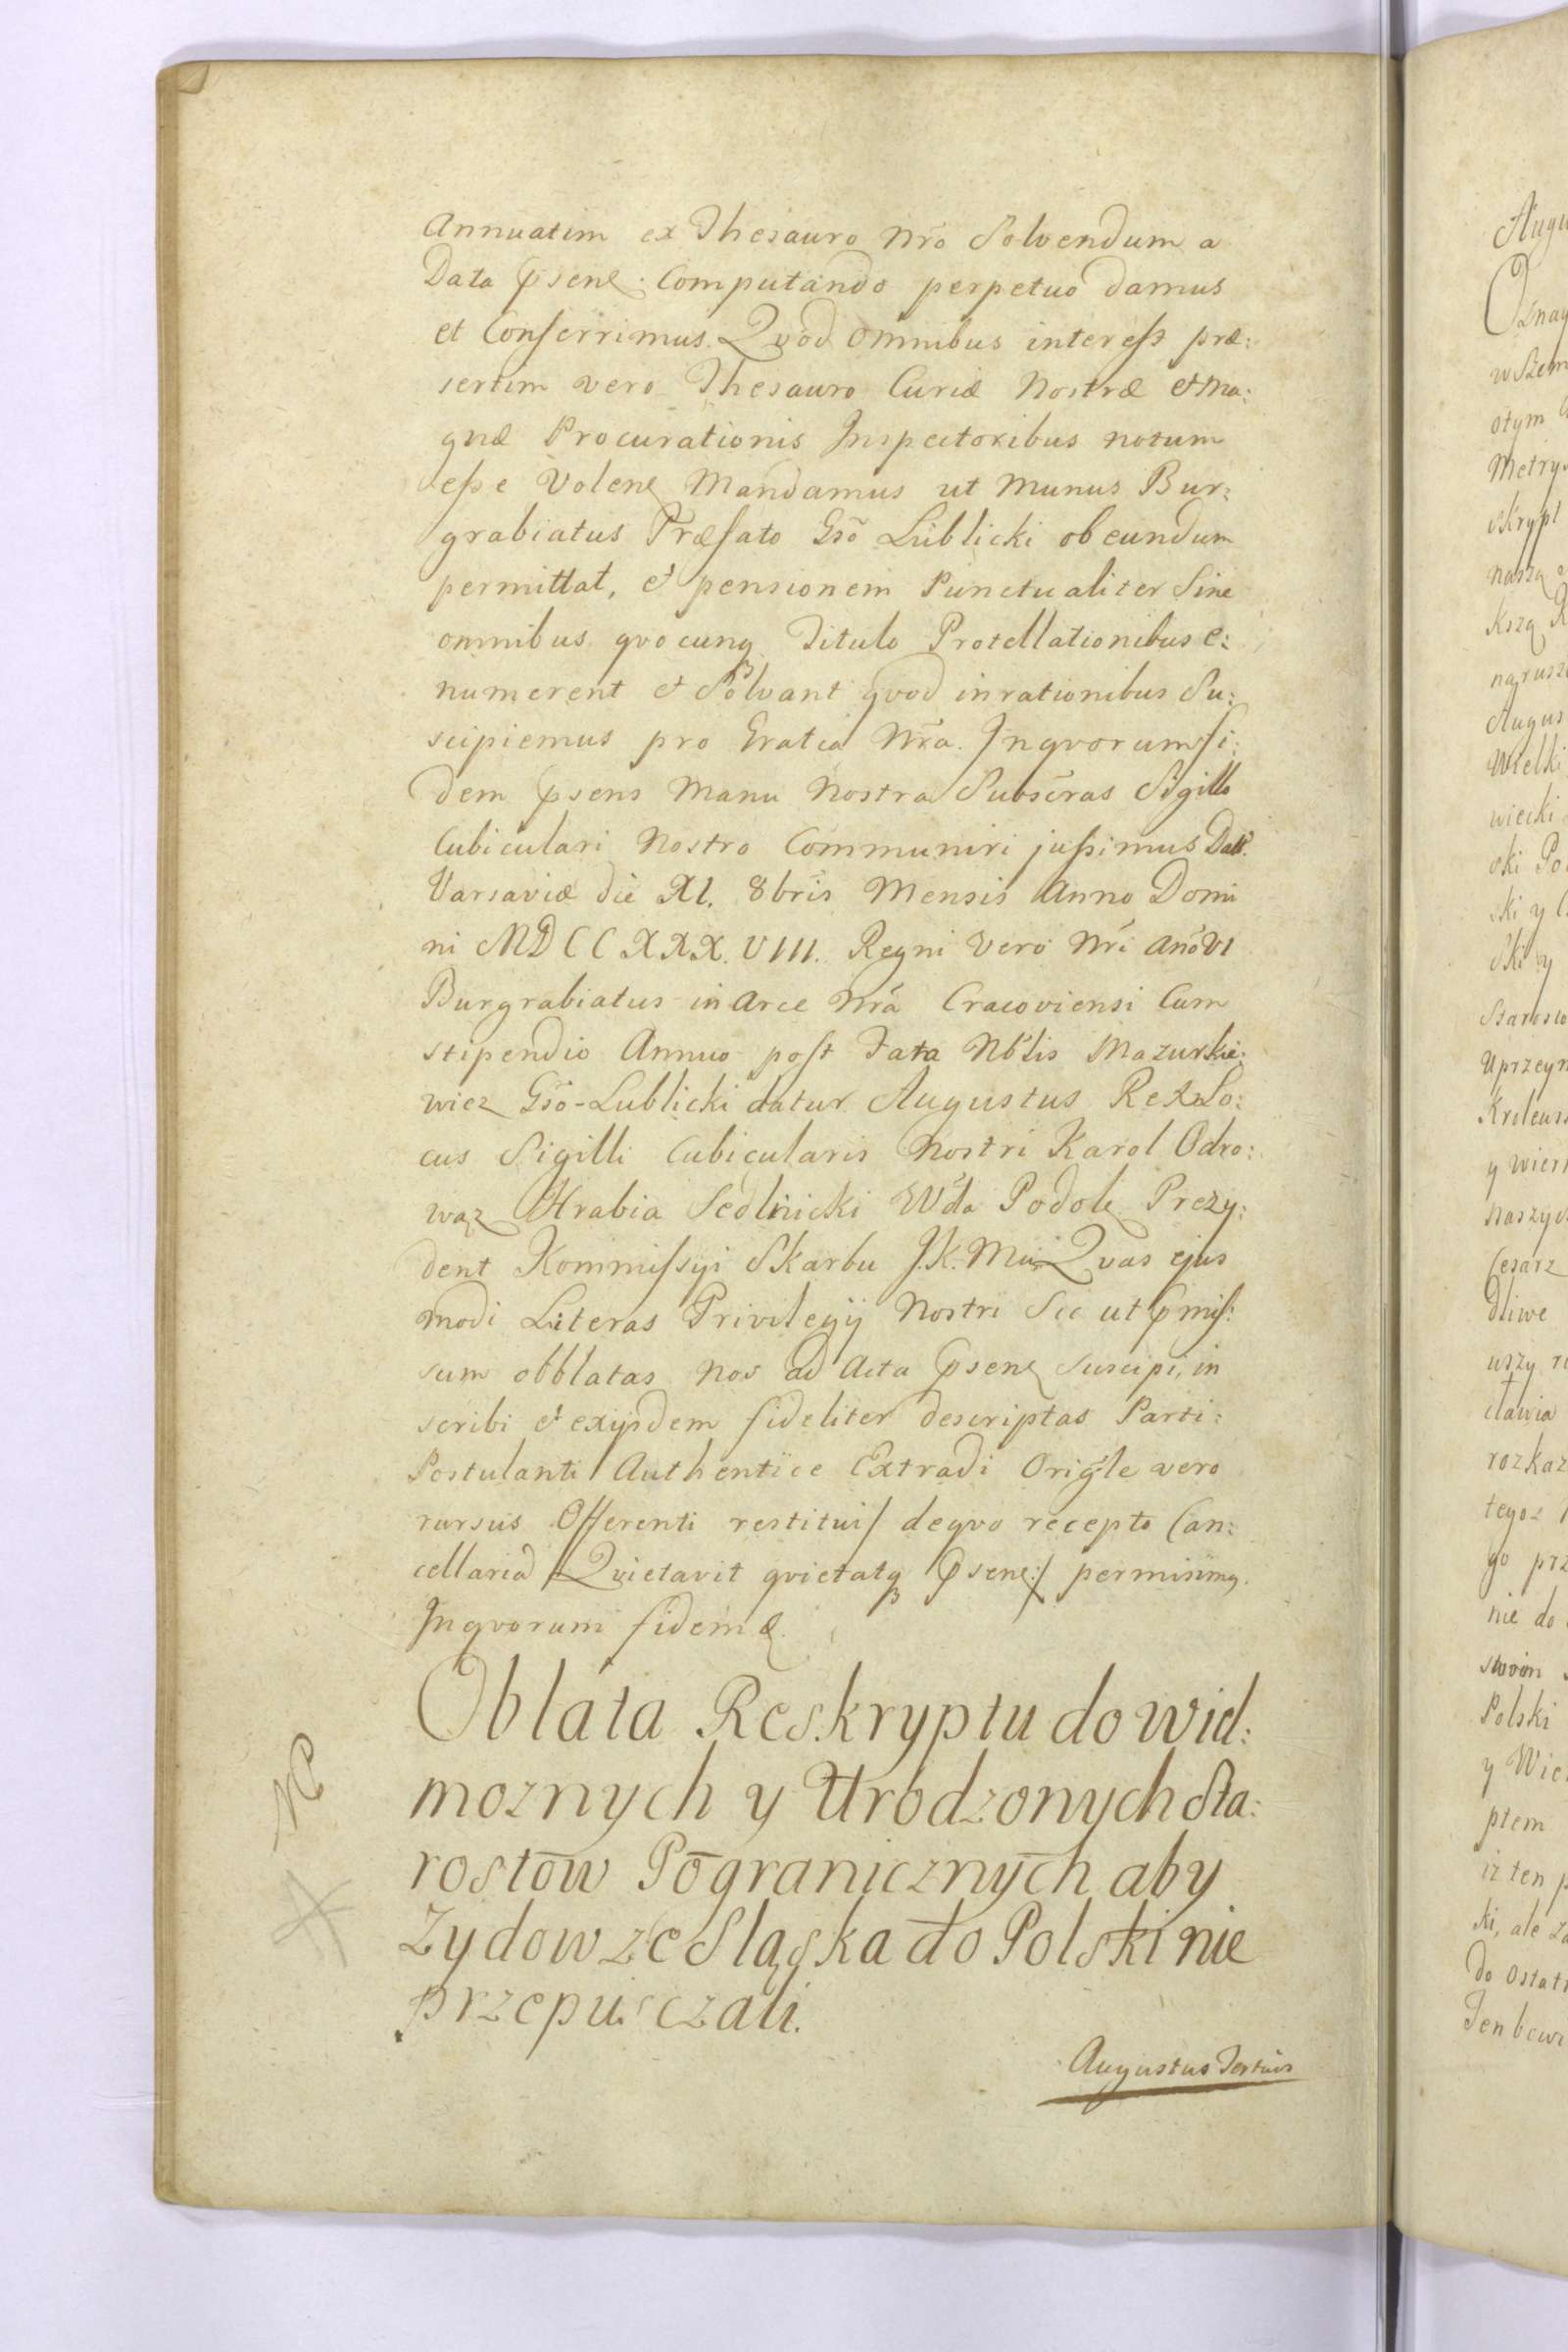 Annuatim ex Thesauro Nr̃o Solvendum a
Data p̃sene. Computando perpetuo damus
et Conferrimus. Qvod omnibus interest præ:
sertim vero Thesauro Curiæ Nostræ et Ma:
gnæ Procurationis Inspectoribus notum
esse Volene Mandamus ut Munus Bur:
grabiatus Præfato Gsõ Lublicki obeundum
permittat, et pensionem Punctualiter Sine
omnibus qvocunq Titulo Protellationibus e:
numerent et Solvant qvod in rationibus Su:
scipiemus pro Gratia Nr̃a. In qvorum fi:
dem p̃sens Manu Nostra Subscr̃as Sigillo
Cubiculari Nostro Communiri jussimus Datt.
Varsaviæ die XI. 8bris Mensis Anno Domi
ni MDCCXXX.VIII. Regni Vero Nr̃i Anõ VI
Burgrabiatus in Arce Nr̃a Cracoviensi Cum
stipendio Annuo post Fata Nb̃lis Mazurkie:
wicz Gsõ Lublicki datur Augustus Rex Lo:
cus Sigilli Cubicularis Nostri Karol Odro:
wąz Hrabia Sedlnicki Wda Podole Prezy:
dent Kommissyi Skarbu J.K. Mci Qvas ejus
modi Literas Privilegij Nostri Sic ut p̃mis:
sum obblatas Nos ad Acta p̃sene Suscipi, in
scribi et ex ijsdem fideliter descriptas Parti:
Postulanti Authentice Extradi Orig̃le vero
rursus Offerenti restitui / de qvo recepto Can:
cellaria Qvietavit qvietatq p̃sene:/ permisimq.
In qvorum fidem &.
Oblata Reskryptu do wiel:
moznych y Urodzonych Sta:
rostow Pogranicznych aby
Zydow ze Sląska do Polski nie
przepusczali.
Augustus Tertius
Augu
Oznay
w Szem
otym
Metry
skrypt
naszą
Kszą
naruszo
Augus
Wielki
wiecki
ski Po
ski y
Ski y
Starosto
Uprzeym
Krolews
y wiern
naszych
Cesarz
dliwe
uszy
cławia
rozkaz
tegoz
go prz
nie do
swoim
Polski
y Wiel
ptem
iz ten
ki, ale za
do ostat